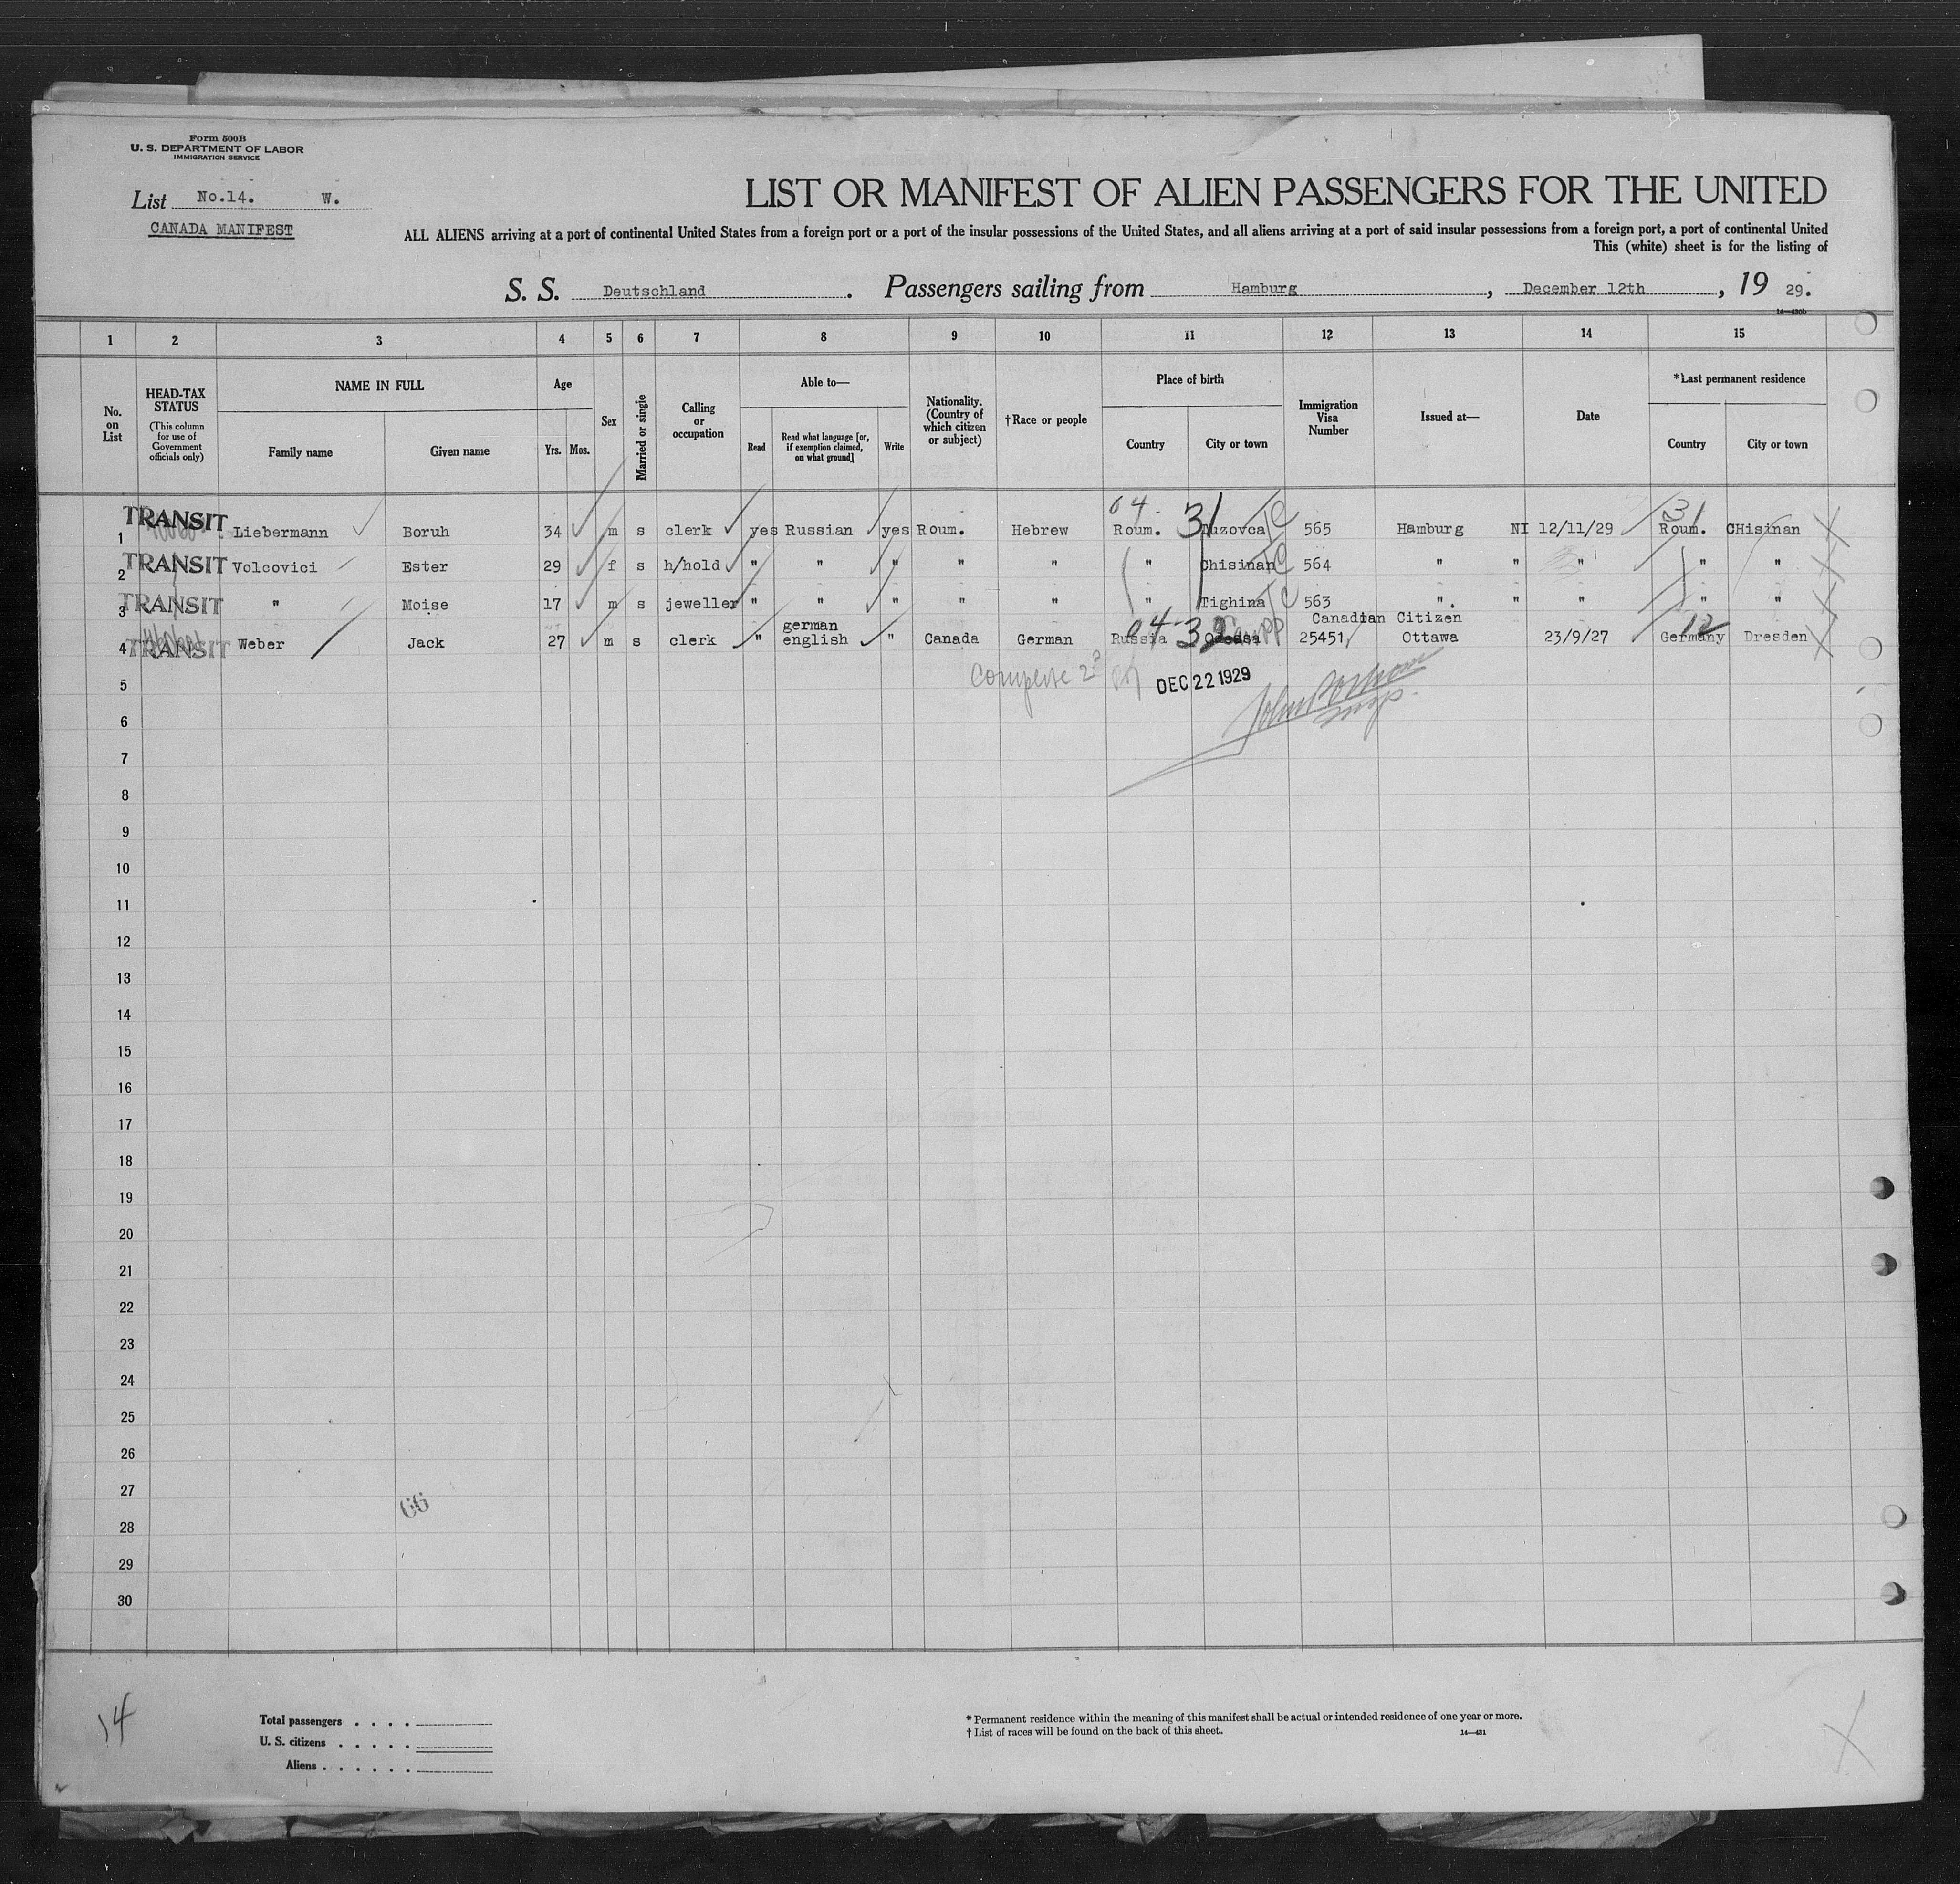 Form 500B
U. S. DEPARTMENT OF LABOR
IMMIGRATION SERVICE
List No.14. W.
CANADA MANIFEST
LIST OR MANIFEST OF ALIEN PASSENGERS FOR THE UNITED
ALL ALIENS arriving at a port of continental United States from a foreign port or a port of the insular possessions of the United States, and all aliens arriving at a port of said insular possessions from a foreign port, a port of continental United
This (white) sheet is for the listing of
S. S. Deutschland. Passengers sailing from Hamburg, December 12th, 19 29.
14—430b
1 2 3 4 5 6 7 8 9 10 11 12 13 14 15
No. on List
HEAD-TAX STATUS (This column for use of Government officials only)
NAME IN FULL
Family name Given name
Age
Yrs. Mos.
Sex
Married or single
Calling or occupation
Able to—
Read
Read what language [or, if exemption claimed, on what ground]
Write
Nationality. (Country of which citizen or subject)
†Race or people
Place of birth
Country City or town
Immigration Visa Number
Issued at—
Date
*Last permanent residence
Country City or town
04. 31 TC 31
1 TRANSIT Liebermann Boruh 34 m s clerk yes Russian yes Roum. Hebrew Roum. Tuzovca 565 Hamburg NI 12/11/29 Roum. CHisinan
2 TRANSIT Volcovici Ester 29 f s h/hold " " " " " " Chisinan TC 564 " " " " "
3 TRANSIT " Moise 17 m s jeweller " " " " " " Tighina TC 563 ". " " " "
german Canadian Citizen
4 TRANSIT Weber Jack 27 m s clerk " english " Canada German Russia Odessa 25451, Ottawa 23/9/27 Germany Dresden
04 PP 12
DEC 22 1929
Insp.
5
6
7
8
9
10
11
12
13
14
15
16
17
18
19
20
21
22
23
24
25
26
27
66
28
29
30
14
Total passengers . . . .
U. S. citizens . . . . .
Aliens . . . . . .
* Permanent residence within the meaning of this manifest shall be actual or intended residence of one year or more.
† List of races will be found on the back of this sheet.
14—431